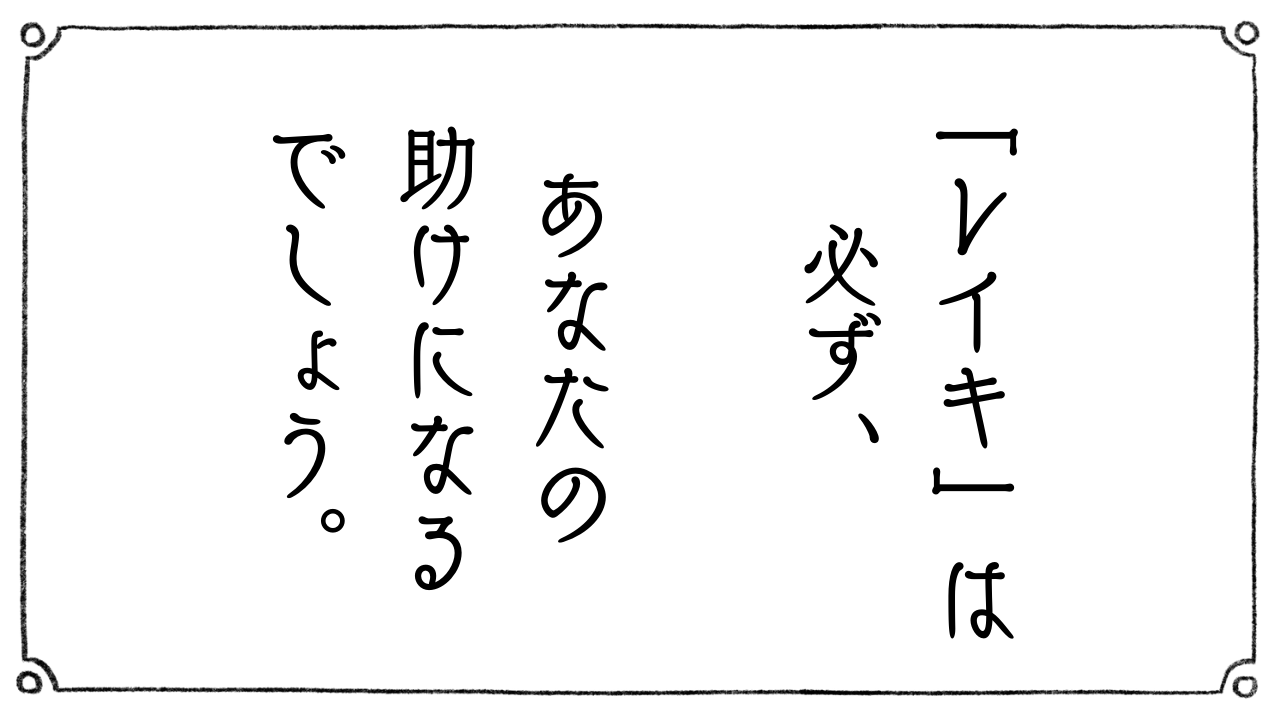 「レイキ」は
必ず、
あなたの
助けになる
でしょう。